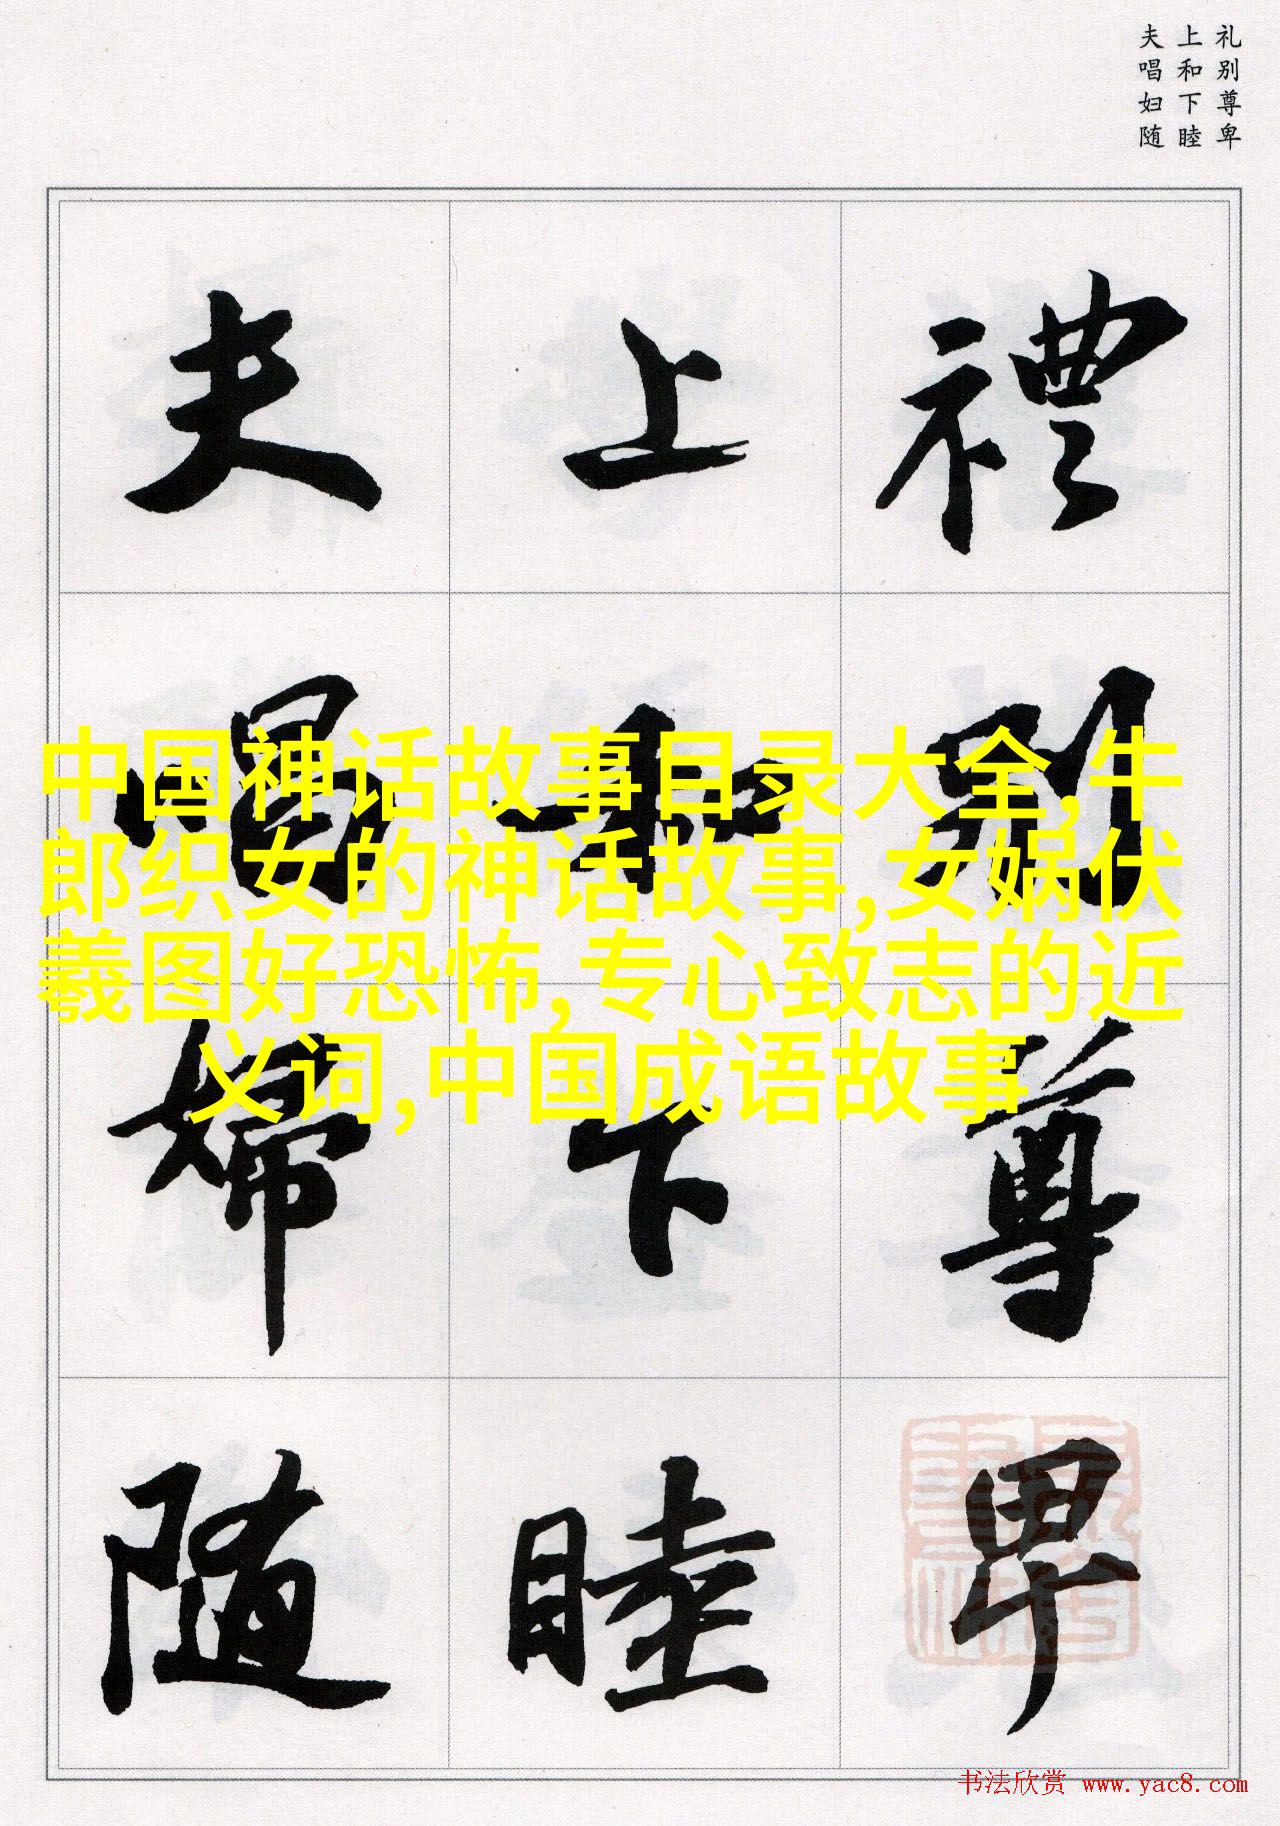 礼别尊卑
上和下睦
夫唱妇随
禮别尊卑
上和下睦
夫唱婦随
中国神话故事目录大全,牛
郎织女的神话故事,女娲伏
羲图好恐怖,专心致志的近
义词,中国成语故事
书法欣赏 www.yac8.com